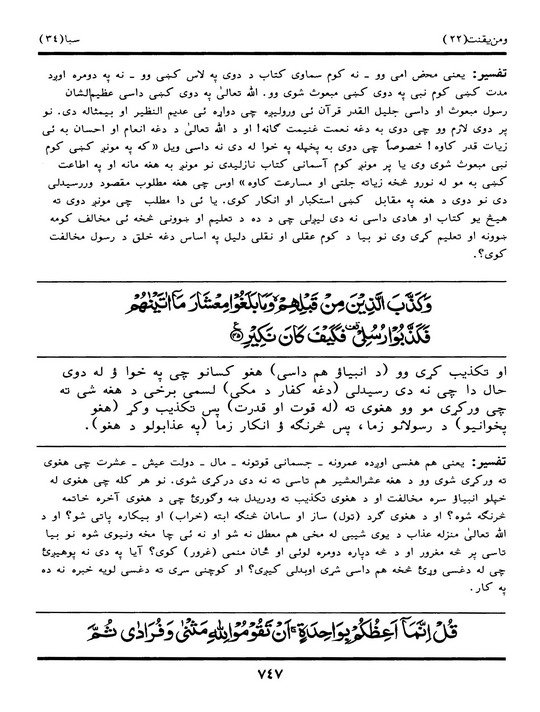 ومن یقنت(۲۲) سبا(۳٤)
تفسیر: یعنی محض امی وو ـ نه کوم سماوی کتاب د دوی په لاس کښی وو ـ نه په دومره اوږد
مدت کښی کوم نبی په دوی کښی مبعوث شوی وو. الله تعالیٰ په دوی کښی داسی عظیم‌الشان
رسول مبعوث او داسی جلیل القدر قرآن ئی ورولیږه چی دواړه ئی عدیم النظیر او بیمثاله دی. نو
پر دوی لازم وو چی دوی به دغه نعمت غنیمت ګاڼه! او د الله تعالیٰ د دغه انعام او احسان به ئی
زیات قدر کاوه! خصوصاً چی دوی به پخپله په خوا له دی نه داسی ویل «که په مونږ کښی کوم
نبی مبعوث شوی وی یا پر مونږ کوم آسمانی کتاب نازلیدی نو مونږ به هغه مانه او په اطاعت
کښی به مو له نورو څخه زیاته جلتی او مسارعت کاوه» اوس چی هغه مطلوب مقصود وررسیدلی
دی نو دوی د هغه په مقابل کښی استکبار او انکار کوی. یا ئی دا مطلب چی مونږ دوی ته
هیڅ یو کتاب او هادی داسی نه دی لیږلی چی د ده د تعلیم او ښوونی څخه ئی مخالف کومه
ښوونه او تعلیم کړی وی نو بیا د کوم عقلی او نقلی دلیل په اساس دغه خلق د رسول مخالفت
کوی؟.
وَكَذَّبَ الَّذِيْنَ مِنْ قَبْلِهِمْ وَمَا بَلَغُوْا مِعْشَارَ مَاۤ اٰتَيْنٰهُمْ
فَكَذَّبُوْا رُسُلِیْ فَكَيْفَ كَانَ نَكِيْرِ ﴿۴۵﴾
او تکذیب کړی وو (د انبیاؤ هم داسی) هغو کسانو چی په خوا ؤ له دوی
حال دا چی نه دی رسیدلی (دغه کفار د مکی) لسمی برخی د هغه شی ته
چی ورکړی مو وو هغوی ته (له قوت او قدرت) پس تکذیب وکړ (هغو
پخوانیو) د رسولانو زما، پس څرنګه ؤ انکار زما (په عذابولو د هغو).
تفسیر: یعنی هم هغسی اوږده عمرونه ـ جسمانی قوتونه ـ مال ـ دولت عیش ـ عشرت چی هغوی
ته ورکړی شوی وو د هغه عشرالعشیر هم تاسی ته نه دی درکړی شوی. نو هر کله چی هغوی له
خپلو انبیاؤ سره مخالفت او د هغوی تکذیب ته ودریدل ښه وګورئ چی د هغوی آخره خاتمه
څرنګه شوه؟ او د هغوی ګرد (تول) ساز او سامان څنګه ابته (خراب) او بیکاره پاتی شو؟ او د
الله تعالیٰ منزله عذاب د یوی شیبی له مخی هم معطل نه شو او نه ئی چا مخه ونیوی شوه نو بیا
تاسی پر څه مغرور او د څه دپاره دومره لوئی او ځان منمی (غرور) کوی؟ آیا په دی نه پوهیږئ
چی له دغسی وړئ څخه هم داسی شری اوبدلی کیږی؟ او کوچنی سری ته دغسی لویه خبره نه ده
په کار.
قُلْ اِنَّمَاۤ اَعِظُكُمْ بِوَاحِدَةٍ ۚ اَنْ تَقُوْمُوْا لِلّٰهِ مَثْنٰی وَ فُرَادٰی ثُمَّ
۷٤۷